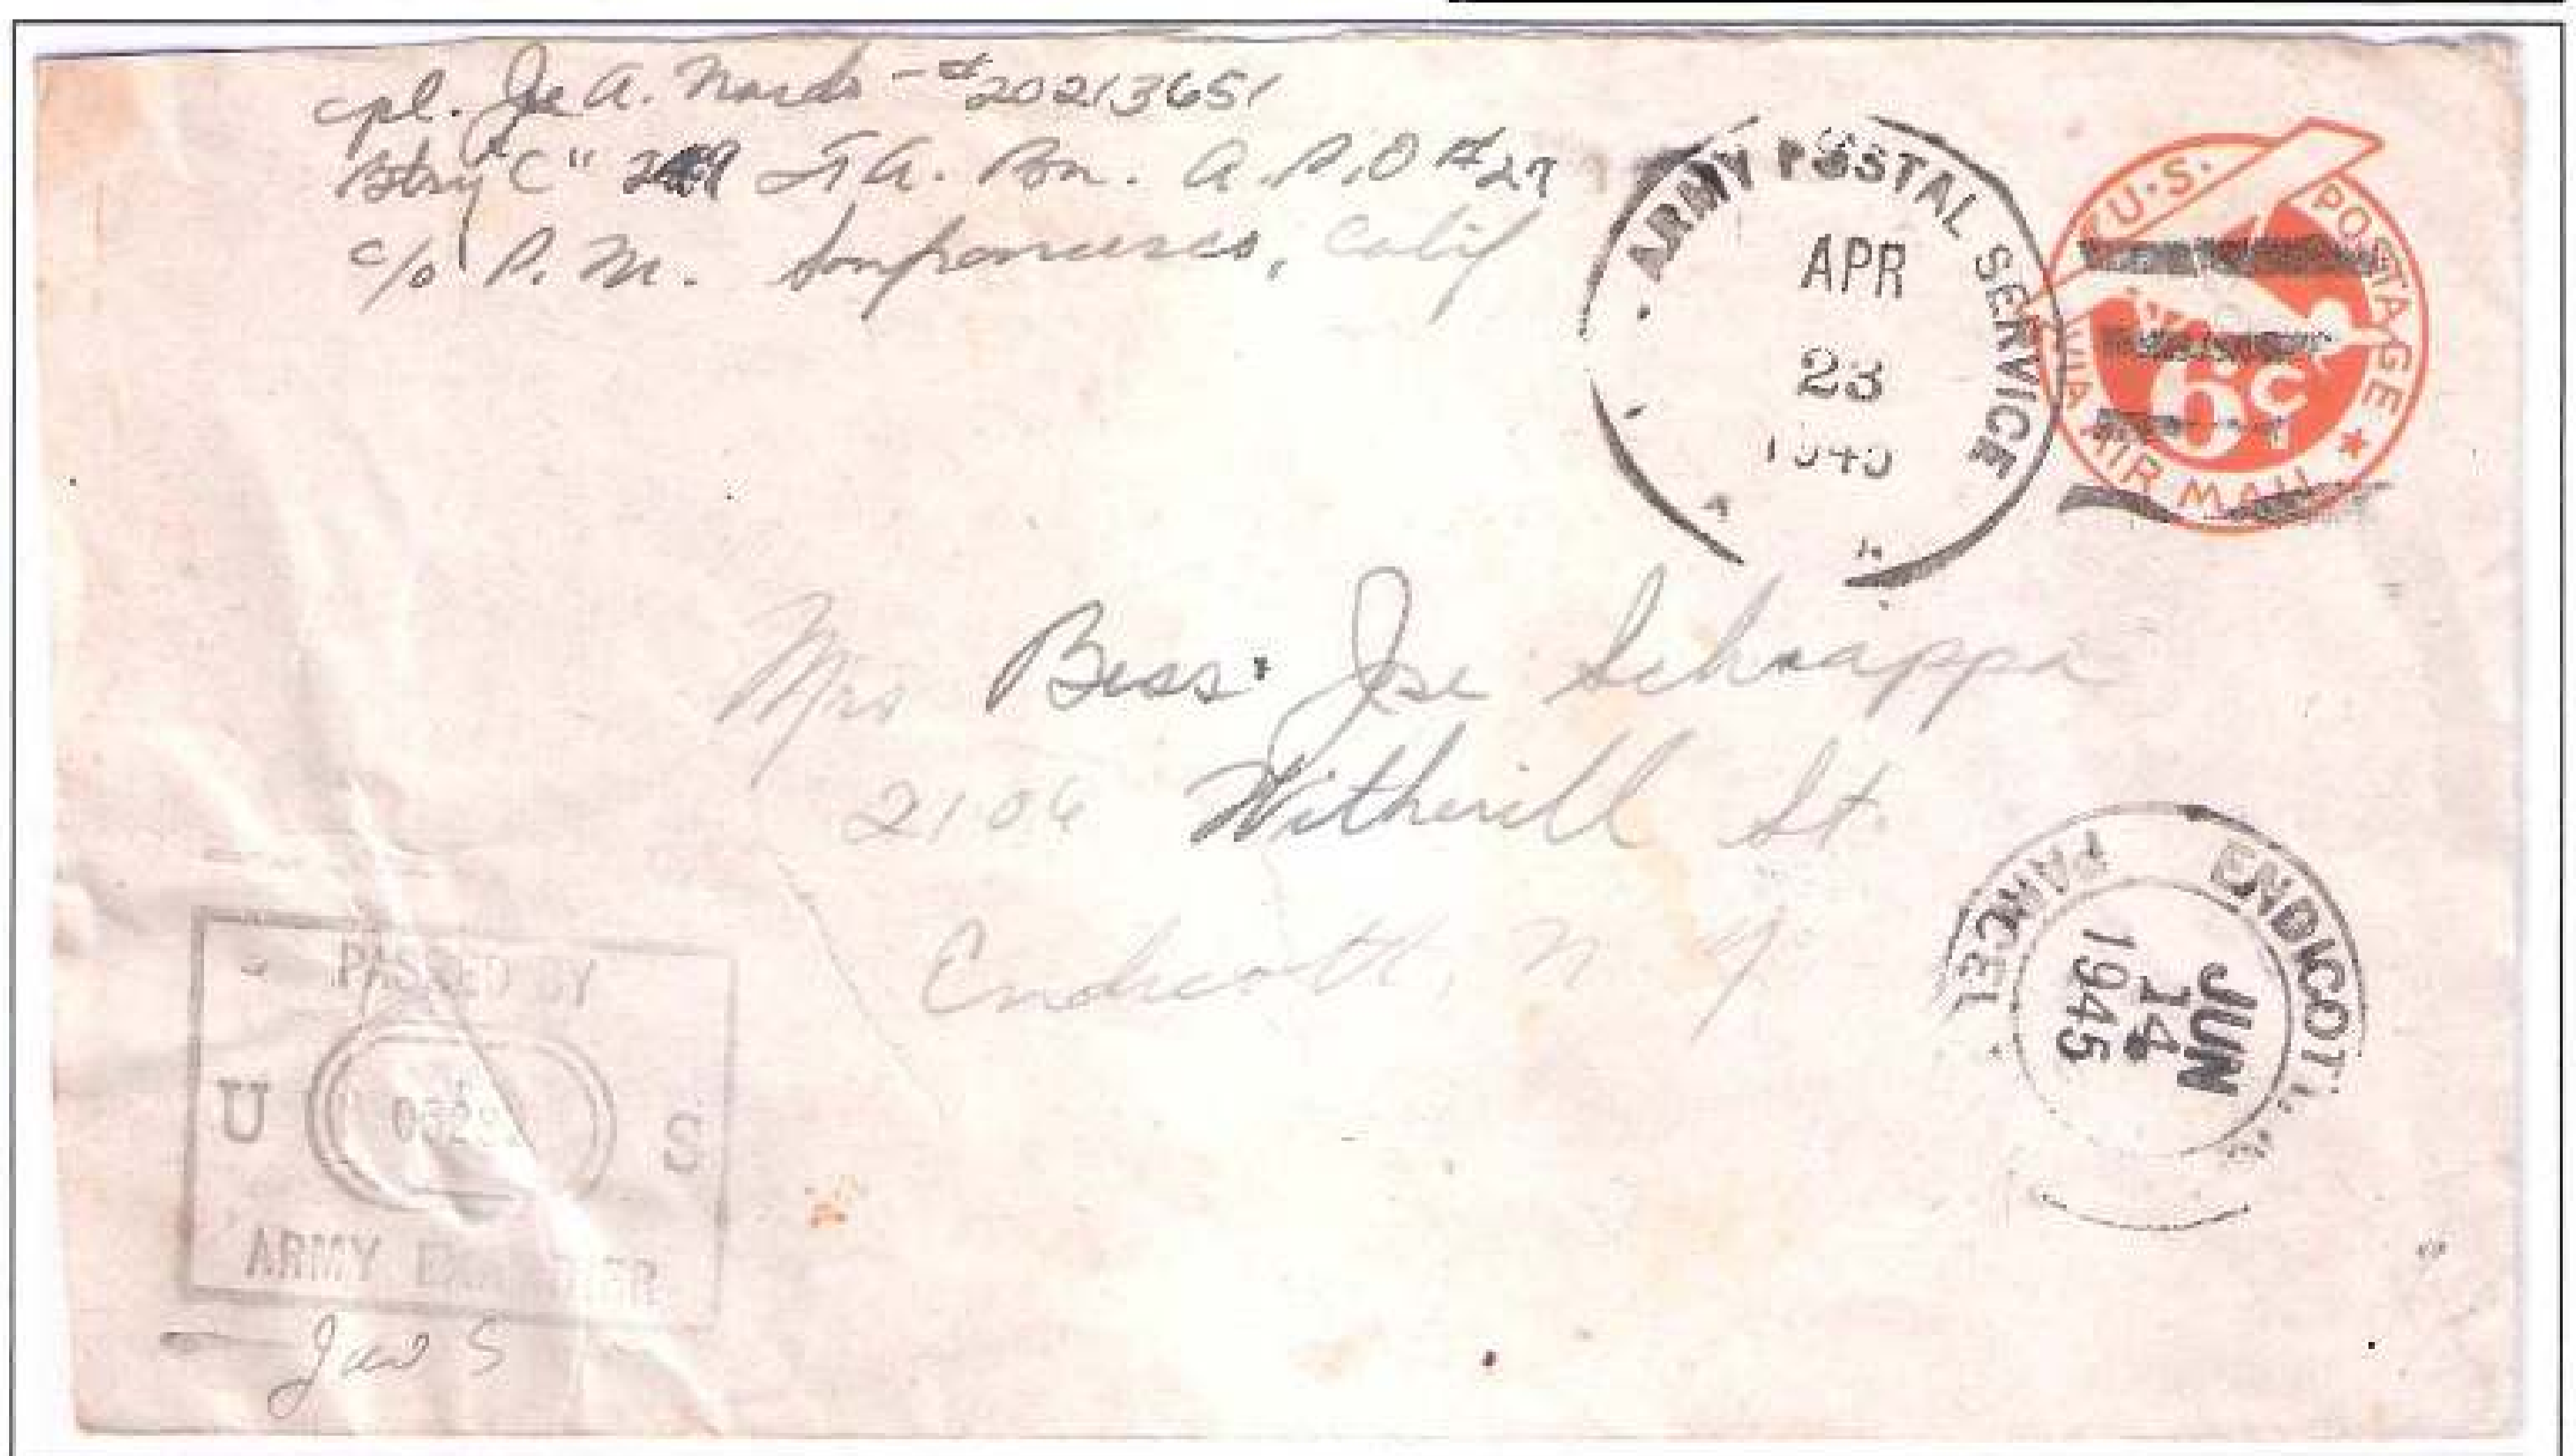 Cpl. Joe A. Nardo - # 20213651
Btry "C" 249 F.A. Bn. A.P.O #27
c/o P.M. Sanfrancisco, Calif
ARMY POSTAL SERVICE
APR
23
1945
U.S. POSTAGE
6c
VIA AIR MAIL
Mrs Bess Joe Schaappa
2106 Witherill St.
Endicott, N Y
ENDICOTT,
PARCEL
JUN
14
1945
PASSED BY
U S
ARMY EXAMINER